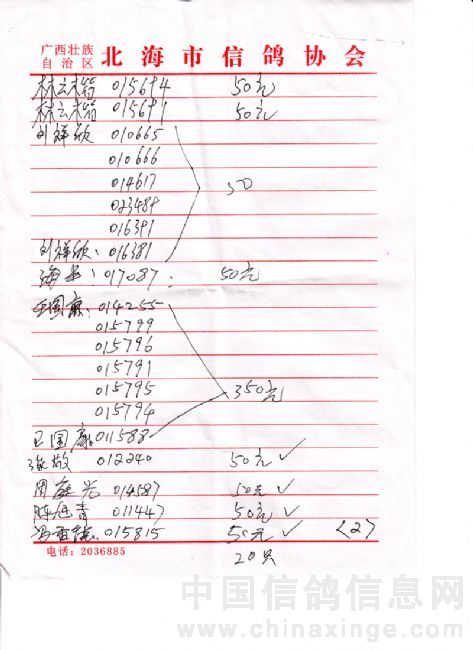 广西壮族自治区 北海市信鸽协会
林云楷 015694 50元
林云楷 015691 50元
刘祥欣 010665
010666
014617 50
023489
016391
刘祥欣: 016381
017087 50元
国廉: 014255
015799
015796
015791
015795 350元
015794
卫国廉 011588
张敬 012240 50元 ✓
周庭光 014587 50元 ✓
陈 青 011447 50元 ✓
冯 015815 50元 ✓ <2>
电话: 2036885
20只
中国信鸽信息网
www.chinaxinge.com